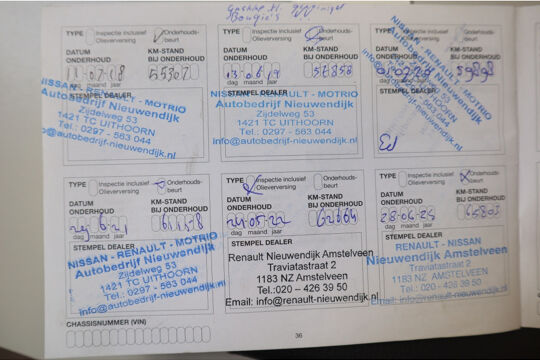 Bougie's
TYPE Inspectie inclusief Olieverversing Onderhouds-beurt
DATUM ONDERHOUD KM-STAND BIJ ONDERHOUD
-07-18 55307
dag maand jaar
STEMPEL DEALER
NISSAN - RENAULT - MOTRIO
Autobedrijf Nieuwendijk
Zijdelweg 53
1421 TC UITHOORN
Tel.: 0297 - 563 044
info@autobedrijf-nieuwendijk.nl
TYPE Inspectie inclusief Olieverversing Onderhouds-beurt
DATUM ONDERHOUD KM-STAND BIJ ONDERHOUD
13-06-19
dag maand jaar
STEMPEL DEALER
NISSAN - RENAULT - MOTRIO
Autobedrijf Nieuwendijk
Zijdelweg 53
1421 TC UITHOORN
Tel.: 0297 - 563 044
info@autobedrijf-nieuwendijk.nl
TYPE Inspectie inclusief Olieverversing Onderhouds-beurt
DATUM ONDERHOUD KM-STAND BIJ ONDERHOUD
dag maand jaar
STEMPEL DEALER
NISSAN - RENAULT - MOTRIO
Autobedrijf Nieuwendijk
Zijdelweg 53
1421 TC UITHOORN
TYPE Inspectie inclusief Olieverversing Onderhouds-beurt
DATUM ONDERHOUD KM-STAND BIJ ONDERHOUD
29-6-21 61158
dag maand jaar
STEMPEL DEALER
NISSAN - RENAULT - MOTRIO
Autobedrijf Nieuwendijk
Zijdelweg 53
1421 TC UITHOORN
Tel.: 0297 - 563 044
info@autobedrijf-nieuwendijk.nl
TYPE Inspectie inclusief Olieverversing Onderhouds-beurt
DATUM ONDERHOUD KM-STAND BIJ ONDERHOUD
24-05-22 62664
dag maand jaar
STEMPEL DEALER
Renault Nieuwendijk Amstelveen
Traviatastraat 2
1183 NZ Amstelveen
Tel.:020 – 426 39 50
Email: info@renault-nieuwendijk.nl
TYPE Inspectie inclusief Olieverversing Onderhouds-beurt
DATUM ONDERHOUD KM-STAND BIJ ONDERHOUD
65803
dag maand jaar
STEMPEL DEALER
RENAULT - NISSAN
Nieuwendijk Amstelveen
Traviatastraat 2
1183 NZ AMSTELVEEN
Tel.: 020 - 426 39 50
Email: info@renault-nieuwendijk.nl
CHASSISNUMMER (VIN)
36